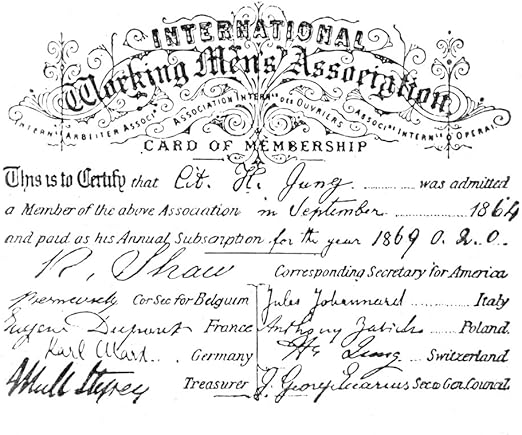 INTERNATIONAL
Working Mens' Association
ASSOCIATION INTERN.LE DES OUVRIERS
INTERN. ARBEITER ASSOC. ASSOCI.NE INTERN.LE OPERAI
CARD OF MEMBERSHIP
This is to Certify that Cit. H. Jung was admitted
a Member of the above Association in September 1864
and paid as his Annual Subscription for the year 1869 0. 2. 0.
R. Shaw Corresponding Secretary for America
Bernard Cor Sec for Belgium Jules Johannard Italy
Eugene Dupont France Anthony Zabicki Poland.
Karl Marx Germany H. Jung Switzerland
Treasurer J. George Eccarius Sec to Gen. Council.